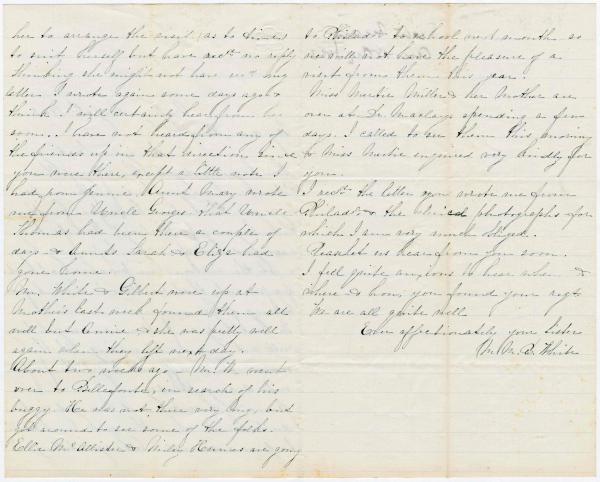 her to arrange the visit (as to times
to suit herself but have recd no reply
thinking she might not have recd my
letter. I wrote again some days ago &
think I will certainly hear from her
soon. I have not heard from any of
the friends up in that direction since
you were there, except a little note I
had from Jennie. Aunt Mary wrote
me from Uncle Georges that Uncle
Thomas had been there a couple of
days & Aunts Sarah & Eliza had
gone home.
Mr. White & Gilbert were up at
Mothers last week found them all
well but Annie & she was pretty well
again when they left next day.
About two weeks ago Mr. W. went
over to Bellefonte, in search of his
buggy. He was not there very long, but
got around to see some of the folks.
Ellie McAllister & Miley are going
to Philada to school next month so
we will not have the pleasure of a
visit from them this year.
Miss Mertie Miller & her Mother are
over at Dr. Maclays spending a few
days. I called to see them this morning
& Miss Mertie enquired very kindly for
you.
I recd the letter you wrote me from
Philada & the photographs for
which I am very much obliged.
Please let us hear from you soon.
I feel quite anxious to hear when &
where & how, you found your regt
We are all quite well
Ever affectionately your Sister
M. M. B. White